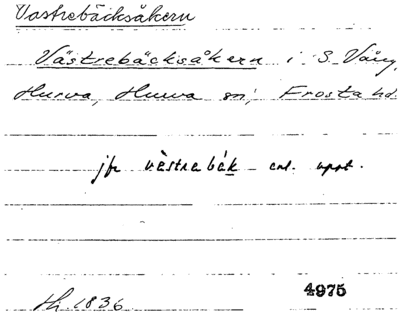 Västrebäcksåkern
Västrebäcksåkern i S. Vång,
Hurva, Hurva sn, Frosta hd.
jfr vèstrabǽk enl. uppt.
Hy 1836
4975